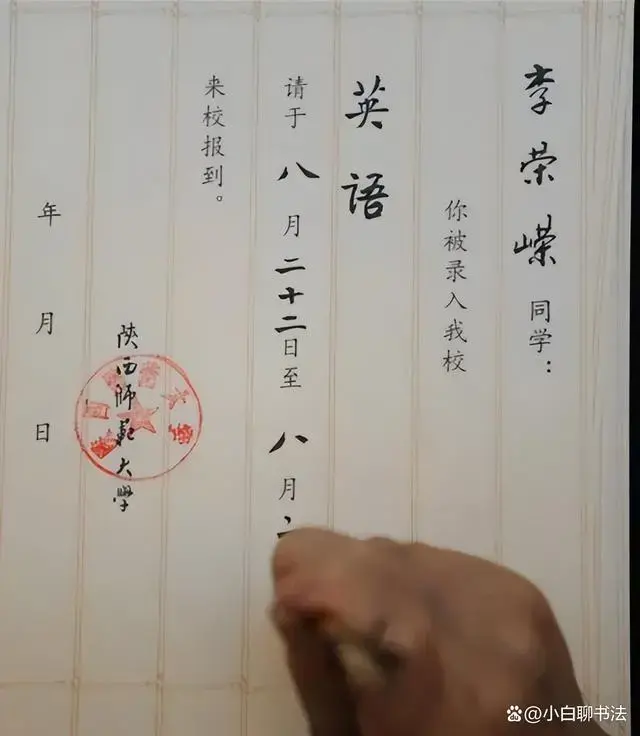 李荣嵘同学：
你被录入我校
英语
请于八月二十二日至八月
来校报到。
陝西师範大學
年月日
@小白聊书法